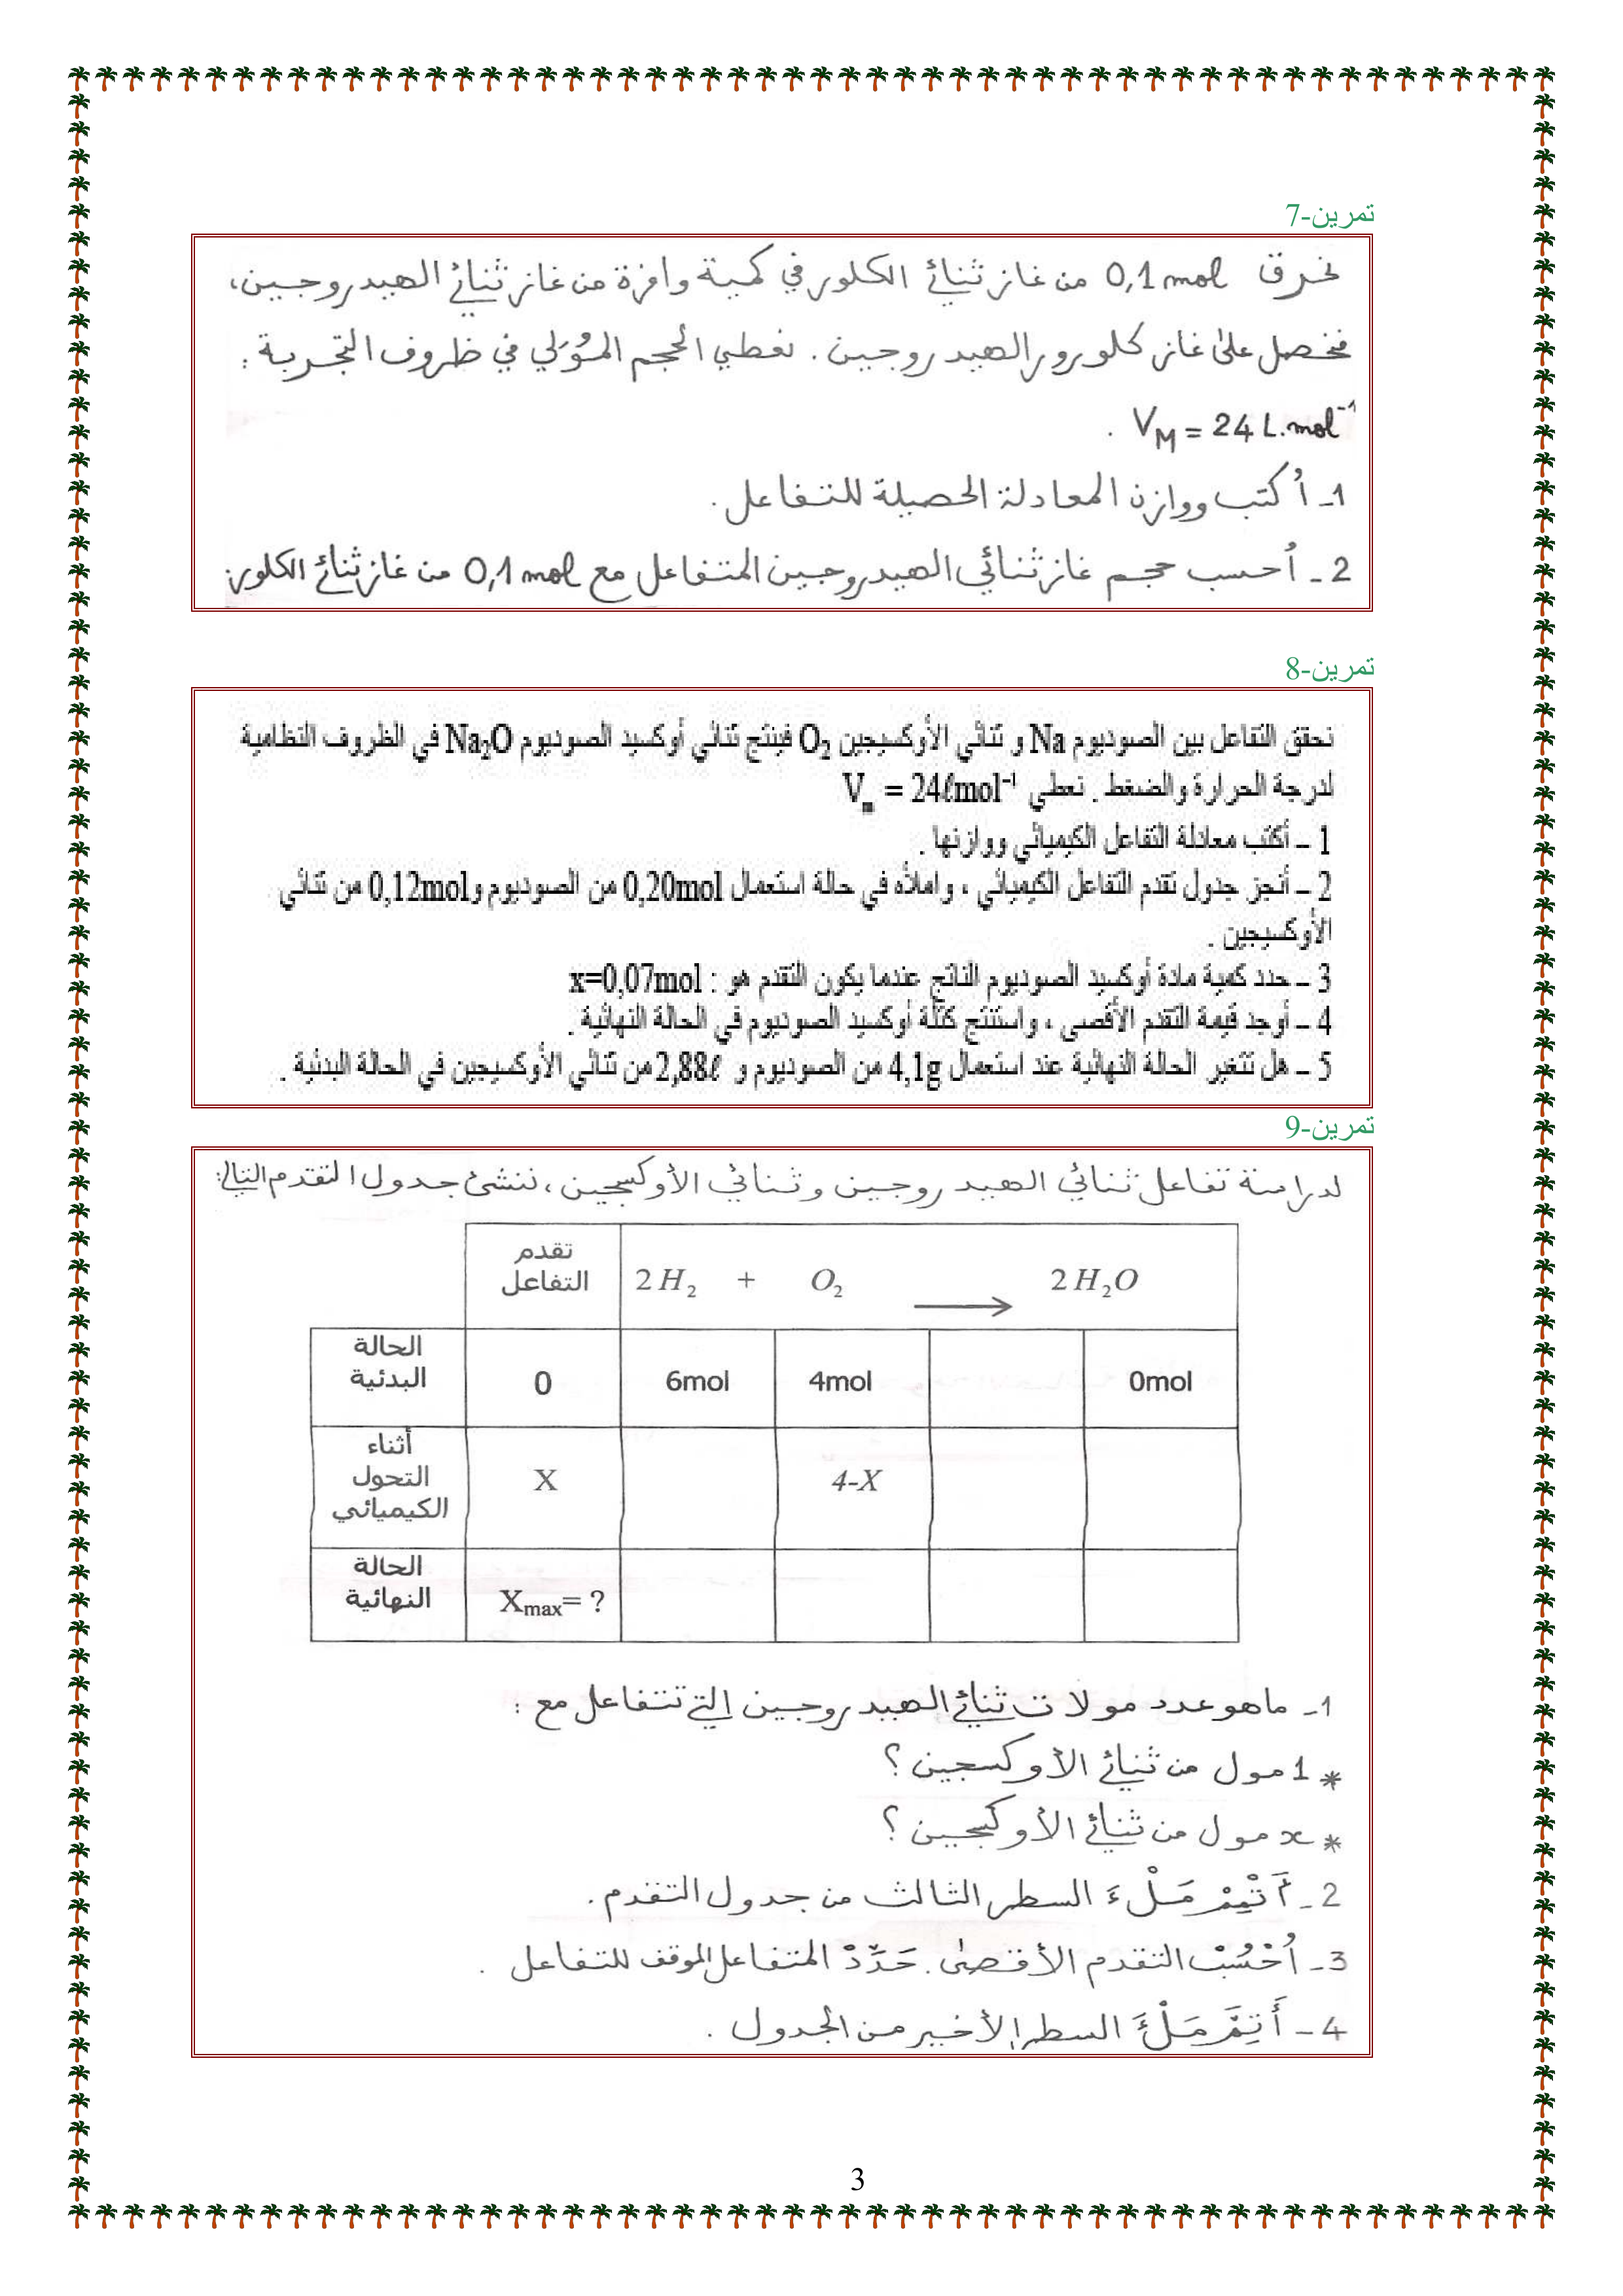 تمرين-7
نحرق 0,1 mol من غاز ثنائي الكلور في كمية وافرة من غاز ثنائي الهيدروجين،
فنحصل على غاز كلورور الهيدروجين. نعطي الحجم المُوَلي في ظروف التجربة :
V_M = 24 L.mol⁻¹ .
1ـ أُكتب ووازن المعادلة الحصيلة للتفاعل.
2 ـ أُحسب حجم غاز ثنائي الهيدروجين المتفاعل مع 0,1 mol من غاز ثنائي الكلور.
تمرين-8
نحقق التفاعل بين الصوديوم Na و ثنائي الأوكسيجين O₂ فينتج ثنائي أوكسيد الصوديوم Na₂O في الظروف النظامية
لدرجة الحرارة والضغط . نعطي V_m = 24ℓmol⁻¹
1 – أكتب معادلة التفاعل الكيميائي ووازنها .
2 – أنجز جدول تقدم التفاعل الكيميائي ، واملأه في حالة استعمال 0,20mol من الصوديوم و0,12mol من ثنائي
الأوكسيجين .
3 – حدد كمية مادة أوكسيد الصوديوم الناتج عندما يكون التقدم هو : x=0,07mol
4 – أوجد قيمة التقدم الأقصى ، واستنتج كتلة أوكسيد الصوديوم في الحالة النهائية .
5 – هل تتغير الحالة النهائية عند استعمال 4,1g من الصوديوم و 2,88ℓ من ثنائي الأوكسيجين في الحالة البدئية .
تمرين-9
لدراسة تفاعل ثنائي الهيدروجين وثنائي الأوكسجين، ننشئ جدول التقدم التالي:
تقدم
التفاعل 2 H₂ + O₂ ⟶ 2 H₂O
الحالة
البدئية 0 6mol 4mol 0mol
أثناء
التحول
الكيميائي X 4-X
الحالة
النهائية Xmax= ?
1ـ ماهو عدد مولات ثنائي الهيدروجين التي تتفاعل مع :
* 1 مول من ثنائي الأوكسجين ؟
* x مول من ثنائي الأوكسجين ؟
2 ـ أَتْمِمْ مَلْءَ السطر الثالث من جدول التقدم .
3 ـ اُحْسُبْ التقدم الأقصى. حَدِّدْ المتفاعل الموقف للتفاعل .
4 ـ أَتِمَّ مَلْءَ السطر الأخير من الجدول .
3